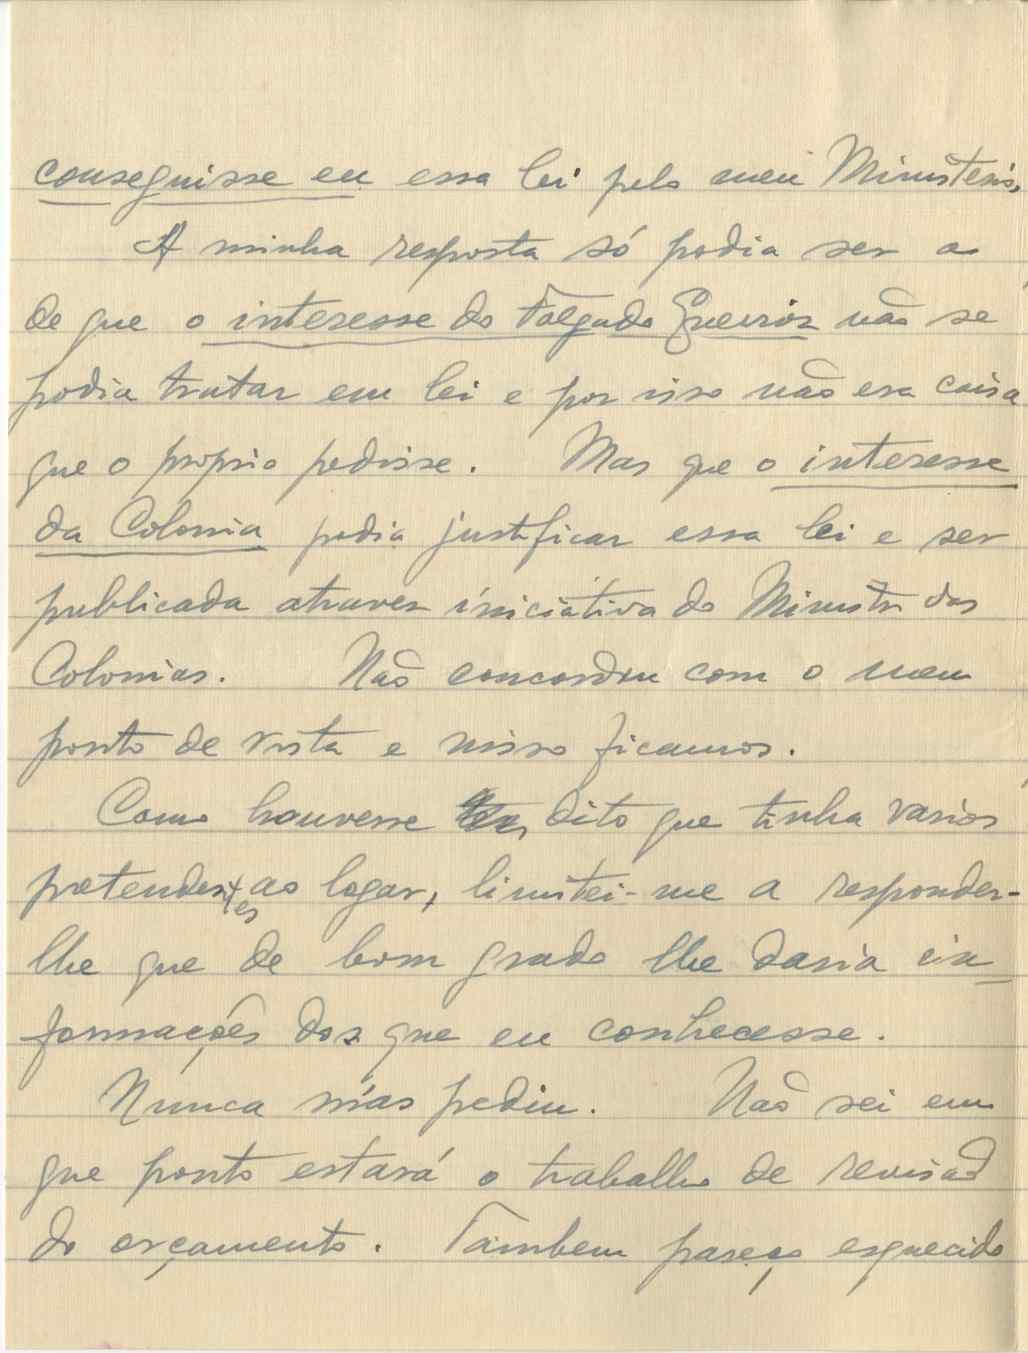 conseguisse eu essa lei pelo meu Ministerio.
A minha resposta só podia ser a
de que o interesse do Folgado Queiroz não se
podia tratar em lei e por isso não era coisa
que o proprio pedisse. Mas que o interesse
da Colonia podia justificar essa lei e ser
publicada atraves iniciativa do Ministro das
Colonias. Não concordou com o meu
ponto de vista e nisso ficamos.
Como houvesse dito que tinha varios
pretendentes ao logar, limitei-me a responder-
lhe que de bom grado lhe daria in-
formações dos que eu conhecesse.
Nunca mais pediu. Não sei em
que ponto estará o trabalho de revisão
do orçamento. Tambem pareço esquecido